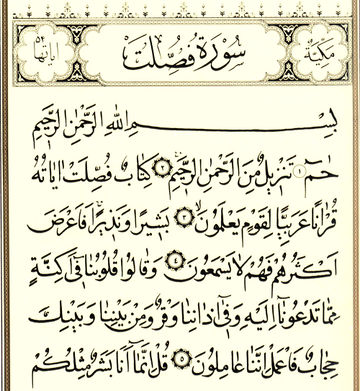 مكية سورة فصلت اياتها ٥٤
بِسْمِ اللّٰهِ الرَّحْمٰنِ الرَّحٖيمِ
حٰمٓ ۝١ تَنْزٖيلٌ مِنَ الرَّحْمٰنِ الرَّحٖيمِ ۝٢ كِتَابٌ فُصِّلَتْ اٰيَاتُهُ
قُرْاٰنًا عَرَبِيًّا لِقَوْمٍ يَعْلَمُونَۙ ۝٣ بَشٖيرًا وَنَذٖيرًاۚ فَاَعْرَضَ
اَكْثَرُهُمْ فَهُمْ لَا يَسْمَعُونَ ۝٤ وَقَالُوا قُلُوبُنَا فٖٓي اَكِنَّةٍ
مِمَّا تَدْعُونَٓا اِلَيْهِ وَفٖٓي اٰذَانِنَا وَقْرٌ وَمِنْ بَيْنِنَا وَبَيْنِكَ
حِجَابٌ فَاعْمَلْ اِنَّنَا عَامِلُونَ ۝٥ قُلْ اِنَّمَٓا اَنَا۬ بَشَرٌ مِثْلُكُمْ